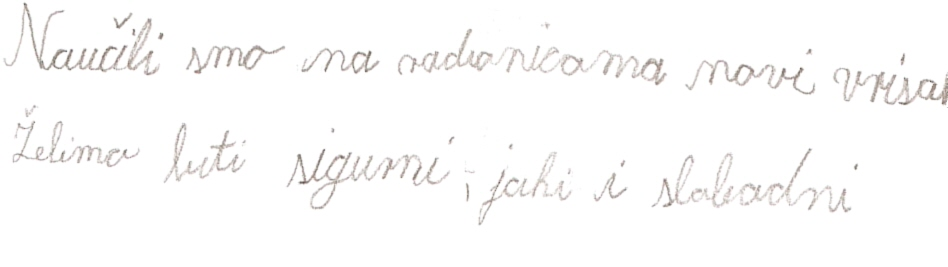 Naučili smo na radionicama novi vrisak
Želimo biti sigurni, jaki i slobodni